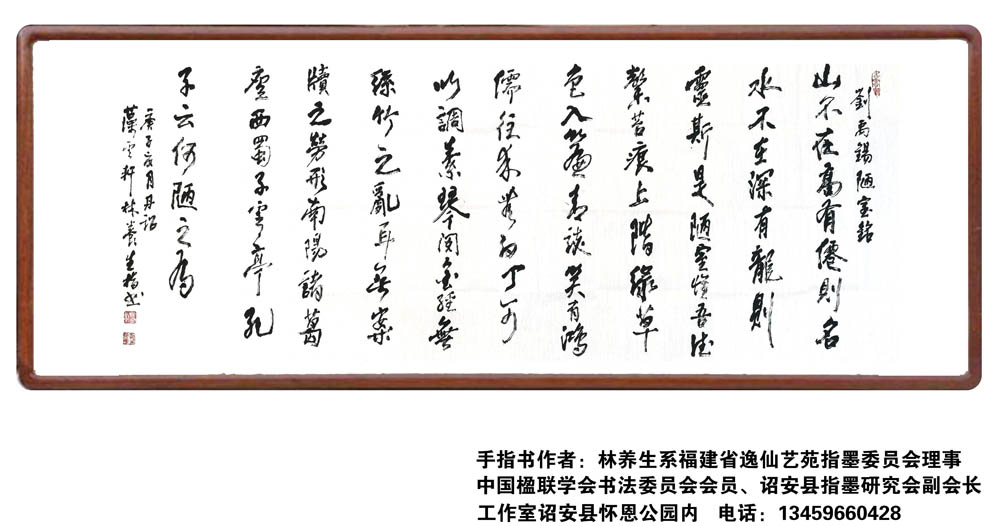 劉禹錫陋室銘
山不在高有僊則名
水不在深有龍則
靈斯是陋室惟吾德
馨苔痕上階綠草
色入簾青談笑有鴻
儒往來無白丁可
以調素琴閱金經無
絲竹之亂耳無案
牘之勞形南陽諸葛
廬西蜀子雲亭孔
子云何陋之有
庚子亥月丹詔
藻雲軒林養生指书
手指书作者：林养生系福建省逸仙艺苑指墨委员会理事
中国楹联学会书法委员会会员、诏安县指墨研究会副会长
工作室诏安县怀恩公园内 电话：13459660428